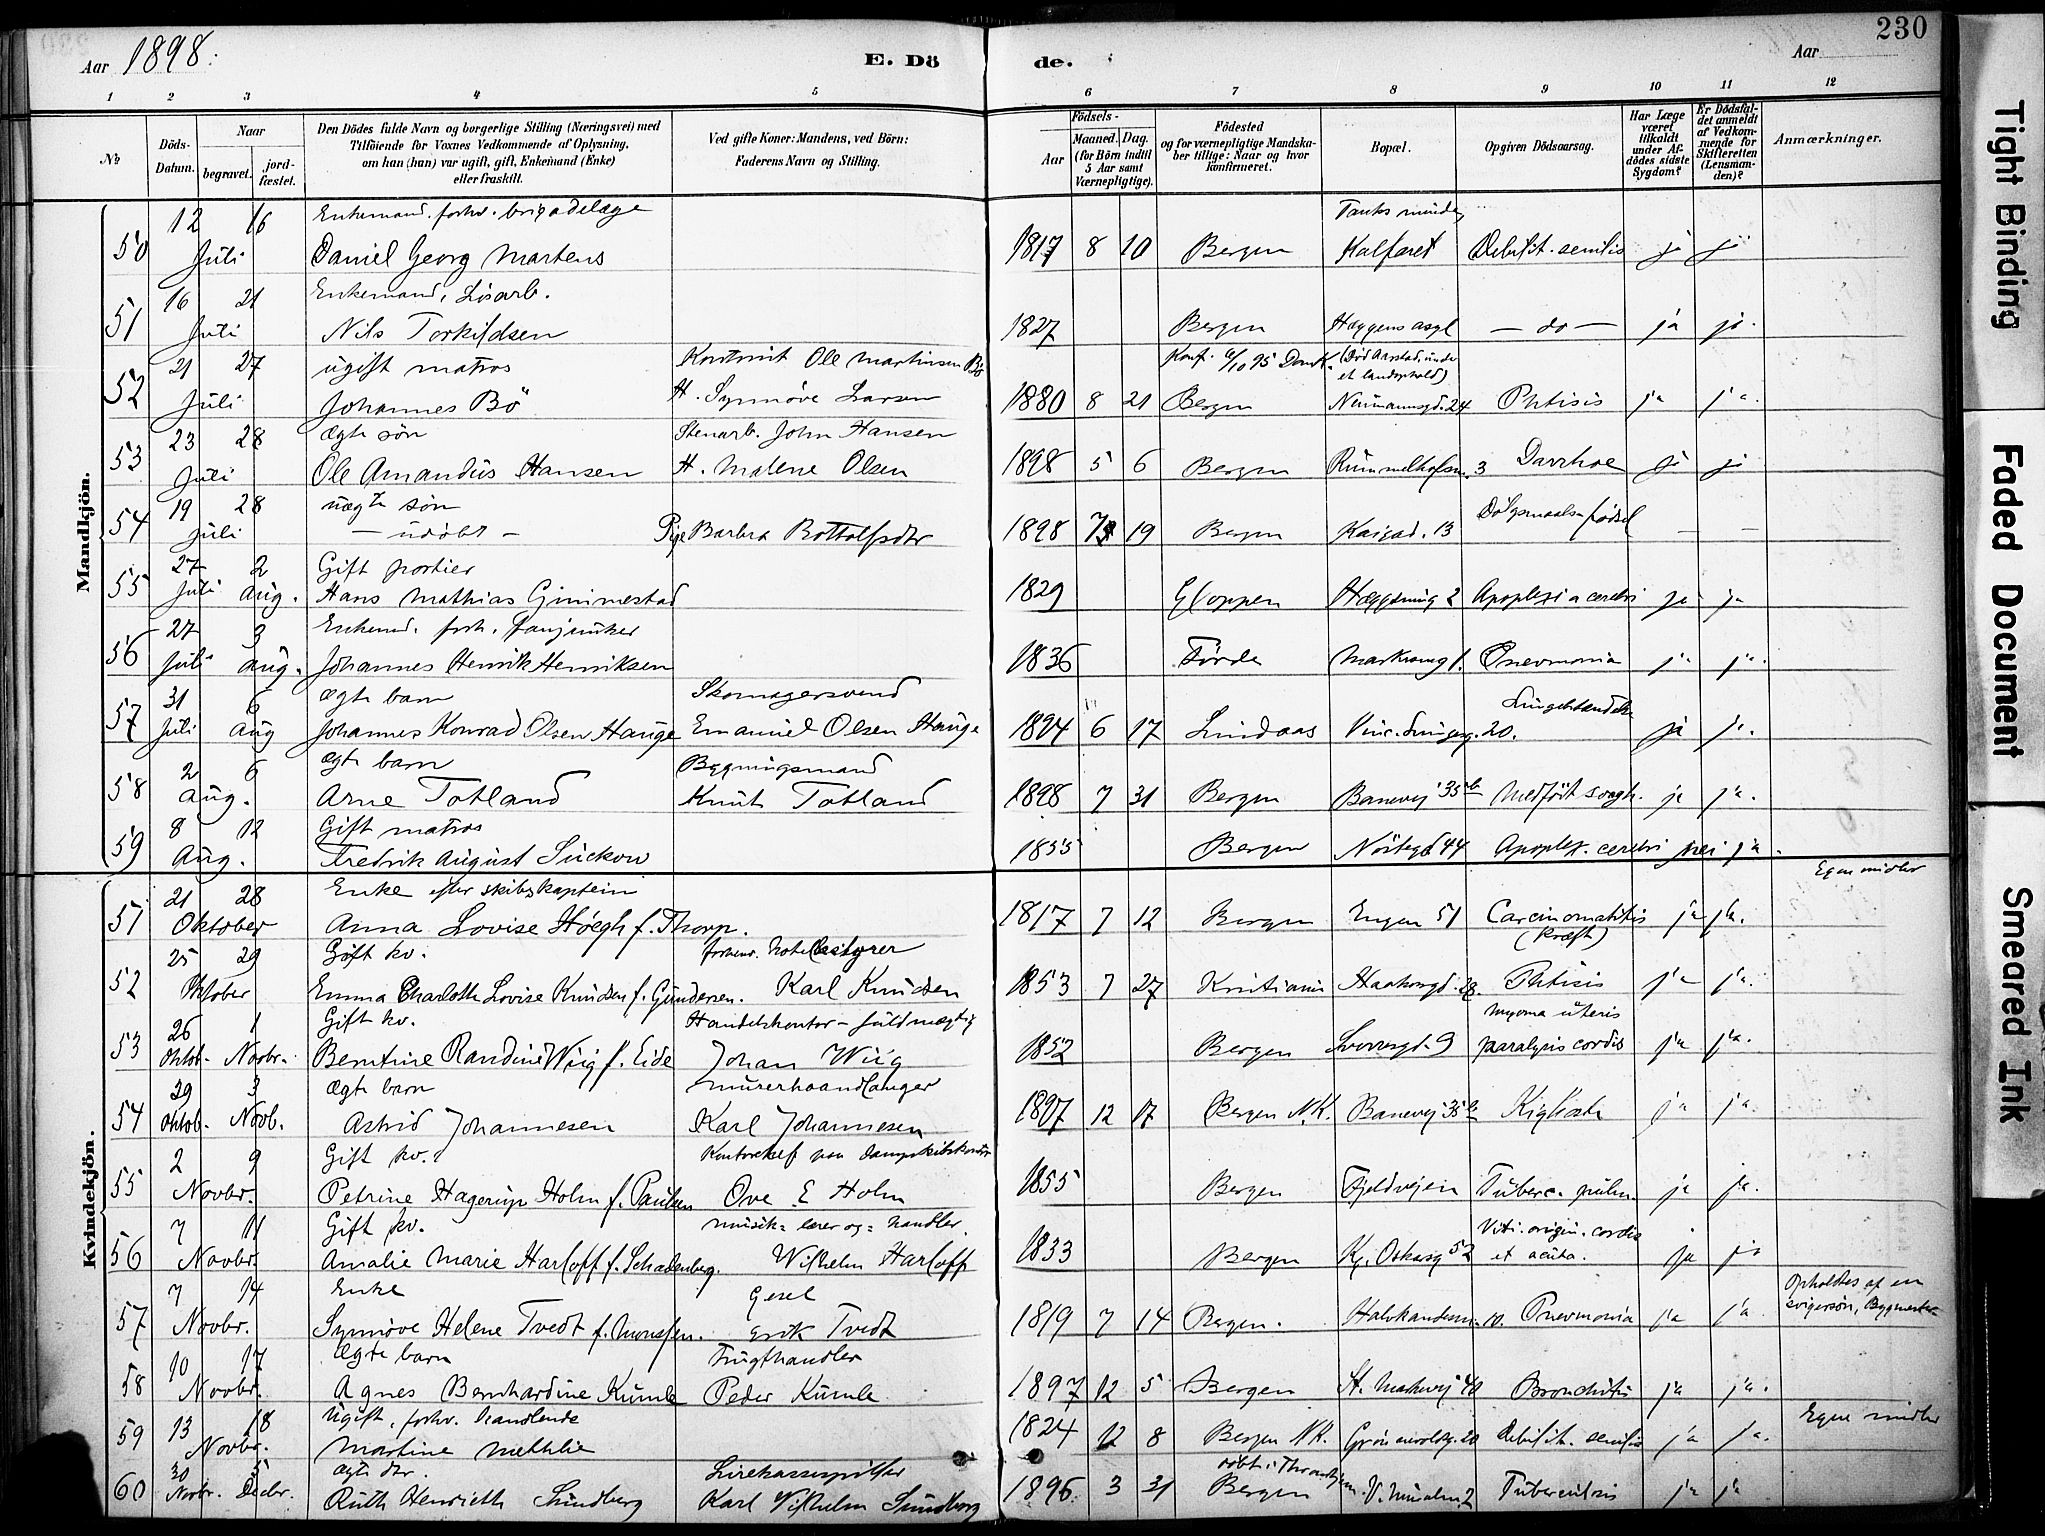 230
Aar 1898.
E. Dö de.
Aar
1 2 3 4 5 6 7 8 9 10 11 12
№
Döds-Datum.
Naar
begravet.
jord-fæstet.
Den Dödes fulde Navn og borgerlige Stilling (Næringsvei) med
Tilföiende for Voxnes Vedkommende af Oplysning,
om han (hun) var ugift, gift, Enkemand (Enke)
eller fraskilt.
Ved gifte Koner: Mandens, ved Börn:
Faderens Navn og Stilling.
Födsels-
Aar
Maaned. Dag.
(for Börn indtil
5 Aar samt
Værnepligtige).
Födested
og for værnepligtige Mandska-
ber tillige: Naar og hvor
konfirmeret.
Bopæl.
Opgiven Dödsaarsag.
Har Læge
været
tilkaldt
under Af-
dödes sidste
Sygdom?
Er Dödsfal-
det anmeldt
af Vedkom-
mende for
Skifteretten
(Lensman-
den)?
Anmærkninger.
Mandkjön.
12 16 Enkemand. forhv. brigadelæge Tanks minde,
50 Juli Daniel Georg Martens 1817 8 10 Bergen Kalfaret Debilit. senilis ja ja
16 21 Enkemand, Lösarb.
51 Juli Nils Torkildsen 1827 Bergen Hæggens asyl — do — ja ja.
21 27 ugift matros Ole Martinsen Bö Konf. 6/10 95 Domk. (Död Aarstad, under
et landophold)
52 Juli Johannes Bö H. Synnöve Larsen 1880 8 21 Bergen Neumannsgd. 24 Phtisis ja ja.
23 28 ægte sön Stenarb. John Hansen
53 Juli Ole Amandus Hansen H. Malene Olsen 1898 5 6 Bergen 3 Darrhoe ja ja
19 28 uægte sön Dölgsmaals födsel
54 Juli — udöbt — Pige Barbra Bottolfsdtr 1898 7 19 Bergen Kaigad. 13 — —
27 2 Gift portier
55 Juli Aug. Hans Mathias Gimmestad 1829 Gloppen 2 Apoplexia cerebri ja ja
27 3 Enkemd. forh. fanejunker
56 Juli Aug. Johannes Henrik Henriksen 1836 Förde Pnevmonia ja ja.
31 6 ægte barn Skomagersvend
57 Juli Aug Johannes Konrad Olsen Hauge Emanuel Olsen Hauge 1894 6 17 Lindaas 20. ja ja.
2 6 ægte barn Bygningsmand
58 Aug. Arne Totland Knut Totland 1898 7 31 Bergen Banevej 35b Medfödt svagh. ja ja.
8 12 Gift matros
59 Aug. Fredrik August Suckow 1855 Bergen Nöstegd 44 Apoplex. cerebri nei ja.
Kvindekjön.
21 28 Enke efter skibskaptein Egne midler
51 Oktober Anna Lovise Höegh f. Thorp. 1817 7 12 Bergen Engen 51 Carcinomatitis ja ja.
(kræft)
25 29 Gift kv. forhenv. hotelbestyrer
52 Oktober Emma Charlotte Lovise Knudsen f. Gundersen. Karl Knudsen 1853 7 27 Kristiania Haakongd. 28. Phtisis ja ja.
26 1 Gift kv. Handelskontor-fuldmægtig Myoma uteris
53 Oktob. Novbr. Berntine Randine Wiig f. Eide Johan Wiig 1852 Bergen Sverresgd. 9 paralysis cordis ja ja.
29 3 ægte barn Murerhaandlanger
54 Oktob. Novb. Astrid Johannesen Karl Johannesen 1897 12 17 Bergen N.K. Banevej 35b Kighoste ja ja.
2 9 Gift kv. Kontorchef paa dampskibskontor
55 Novbr. Petrine Hagerup Holm f. Paulsen Ove E Holm 1855 Bergen Fjeldveien Tuberc. pulm. ja ja.
7 11 Gift kv. musik= lærer og= handler. Viti. origin. cordis
56 Novbr. Amalie Marie Harloff f. Schadenberg. Wilhelm Harloff 1833 Bergen Kg. Oskarsg 52 et acuta. ja ja
7 14 Enke Gesel Opholdtes af en
svigersön, Bygmester
57 Novbr. Synnöve Helene Tvedt f. Monssen. Erik Tvedt 1819 7 14 Bergen. 10. Pnevmonia ja ja
10 17 Ægte barn Frugthandler
58 Novbr. Agnes Bernhardine Kumle Peder Kumle. 1897 12 5 Bergen 40 Bronchitis ja ja.
13 18 Ugift, forhv. handlende Egne midler
59 Novbr. Martine Methlie 1824 12 8 Bergen NK. 20 Debilit. senilis ja ja.
30 5 ægte dtr. Lirekassespiller döbt i Throndhjem.
60 Novbr. Decbr. Ruth Henriette Sundborg Karl Vilhelm Sundborg 1896 3 31 Bergen 2 Tuberculosis ja ja
Tight Binding
Faded Document
Smeared Ink